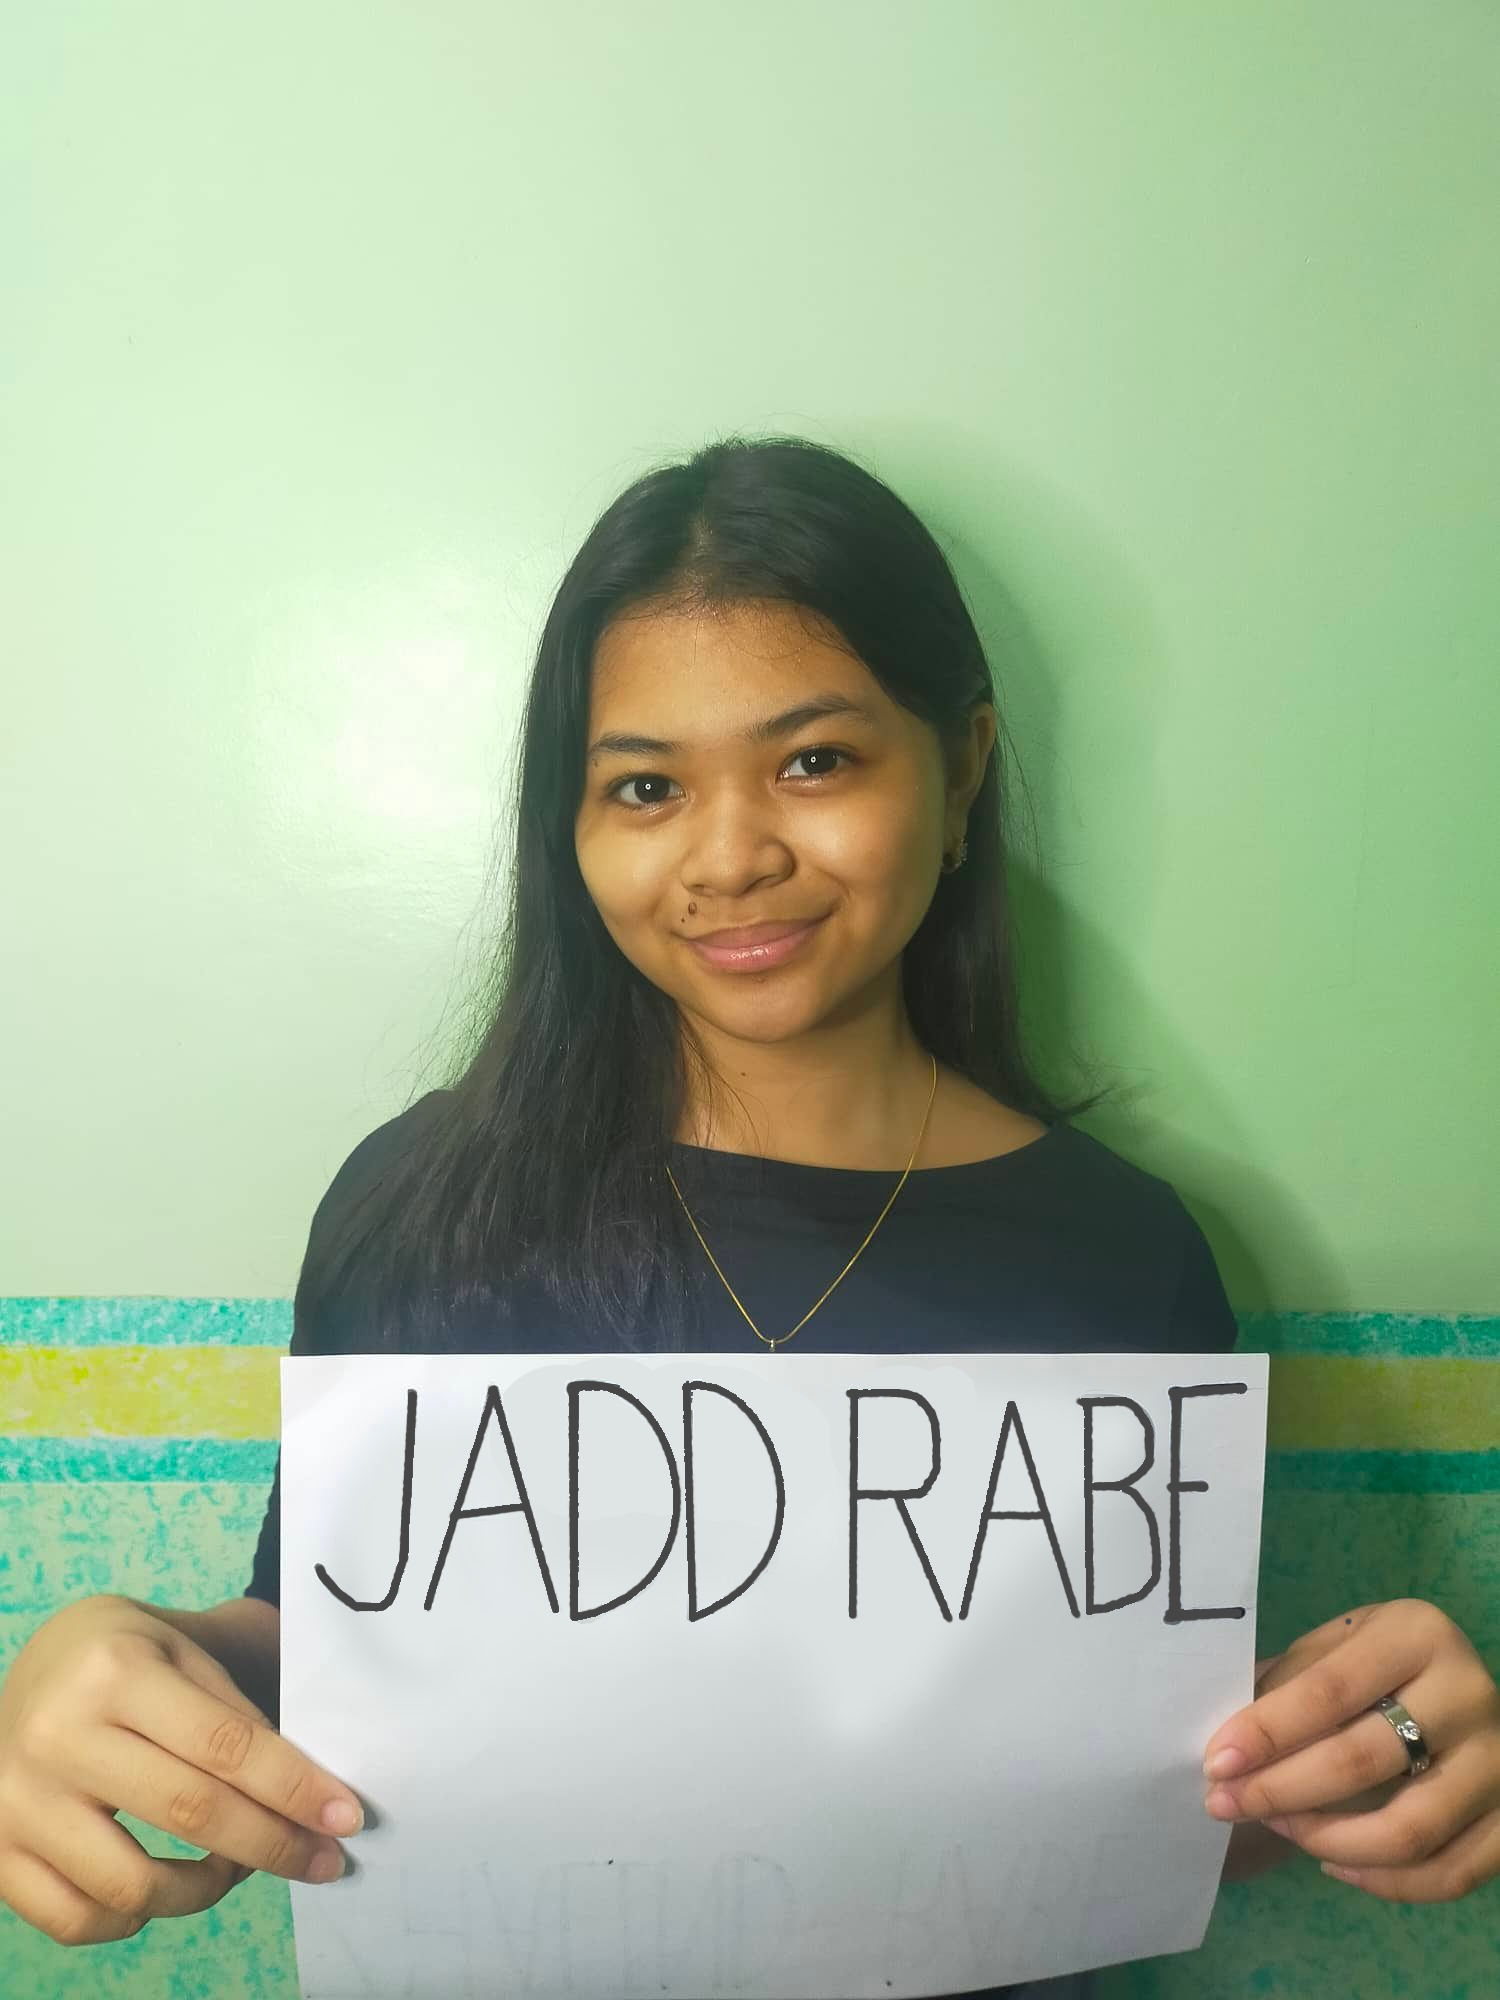 JADD RABE